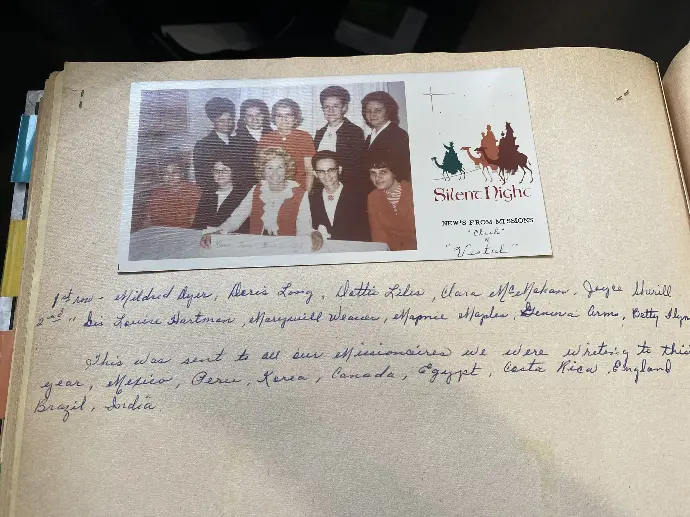 Silent Night
NEW'S FROM MISSIONS
"Vestal"
1st row - Mildred Dyer, Doris Long, Dottie Liles, Clara McMahan, Joyce
2nd " Sis Louise Hartman, Marywill Weaver, Magnie Maples, Geneva Arms, Betty Flynn
This was sent to all our Missionaires we were wrieting to this
year, Mexico, Peru, Korea, Canada, Egypt, Costa Rica, England
Brazil, India